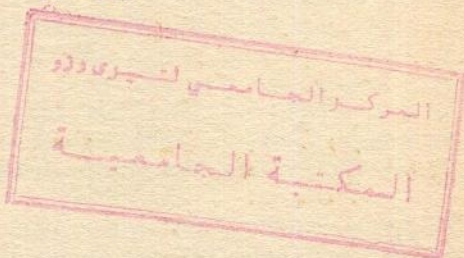 المركز الجامعي لتيزي وزو
المكتبة الجامعية